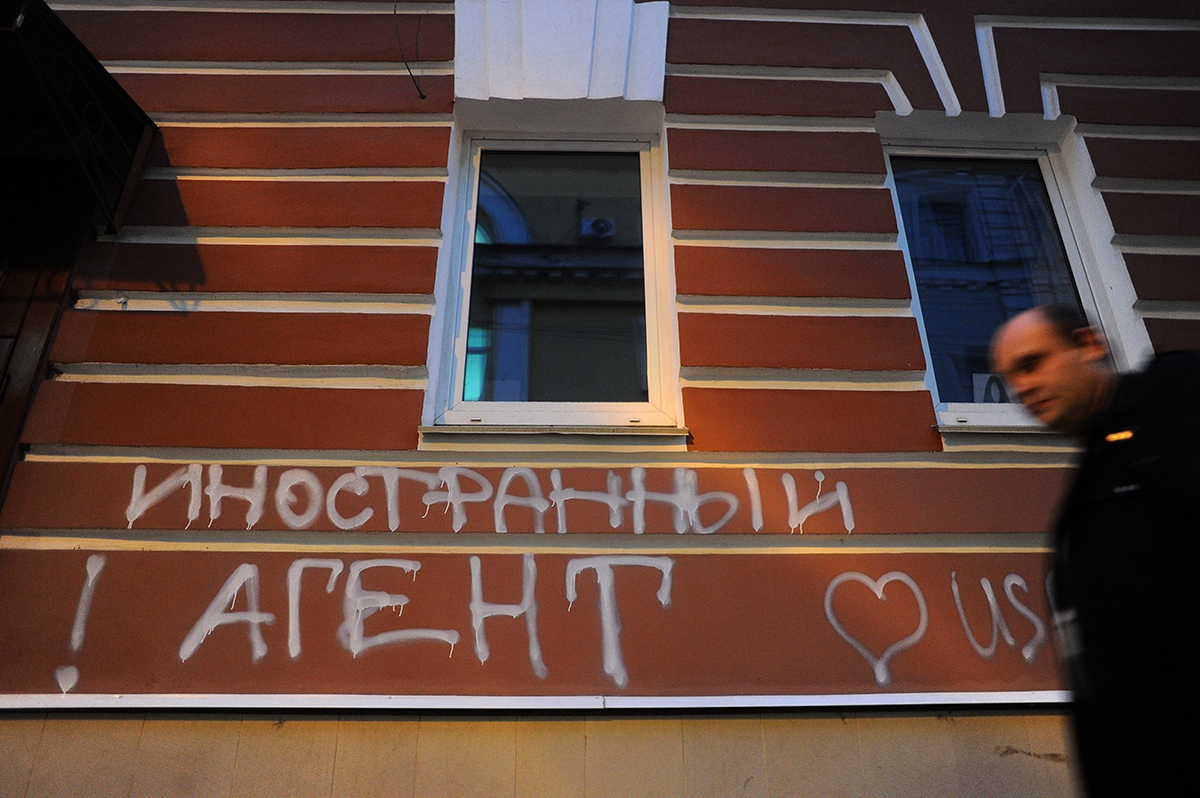 ИНОСТРАННЫЙ
! АГЕНТ ♥ US